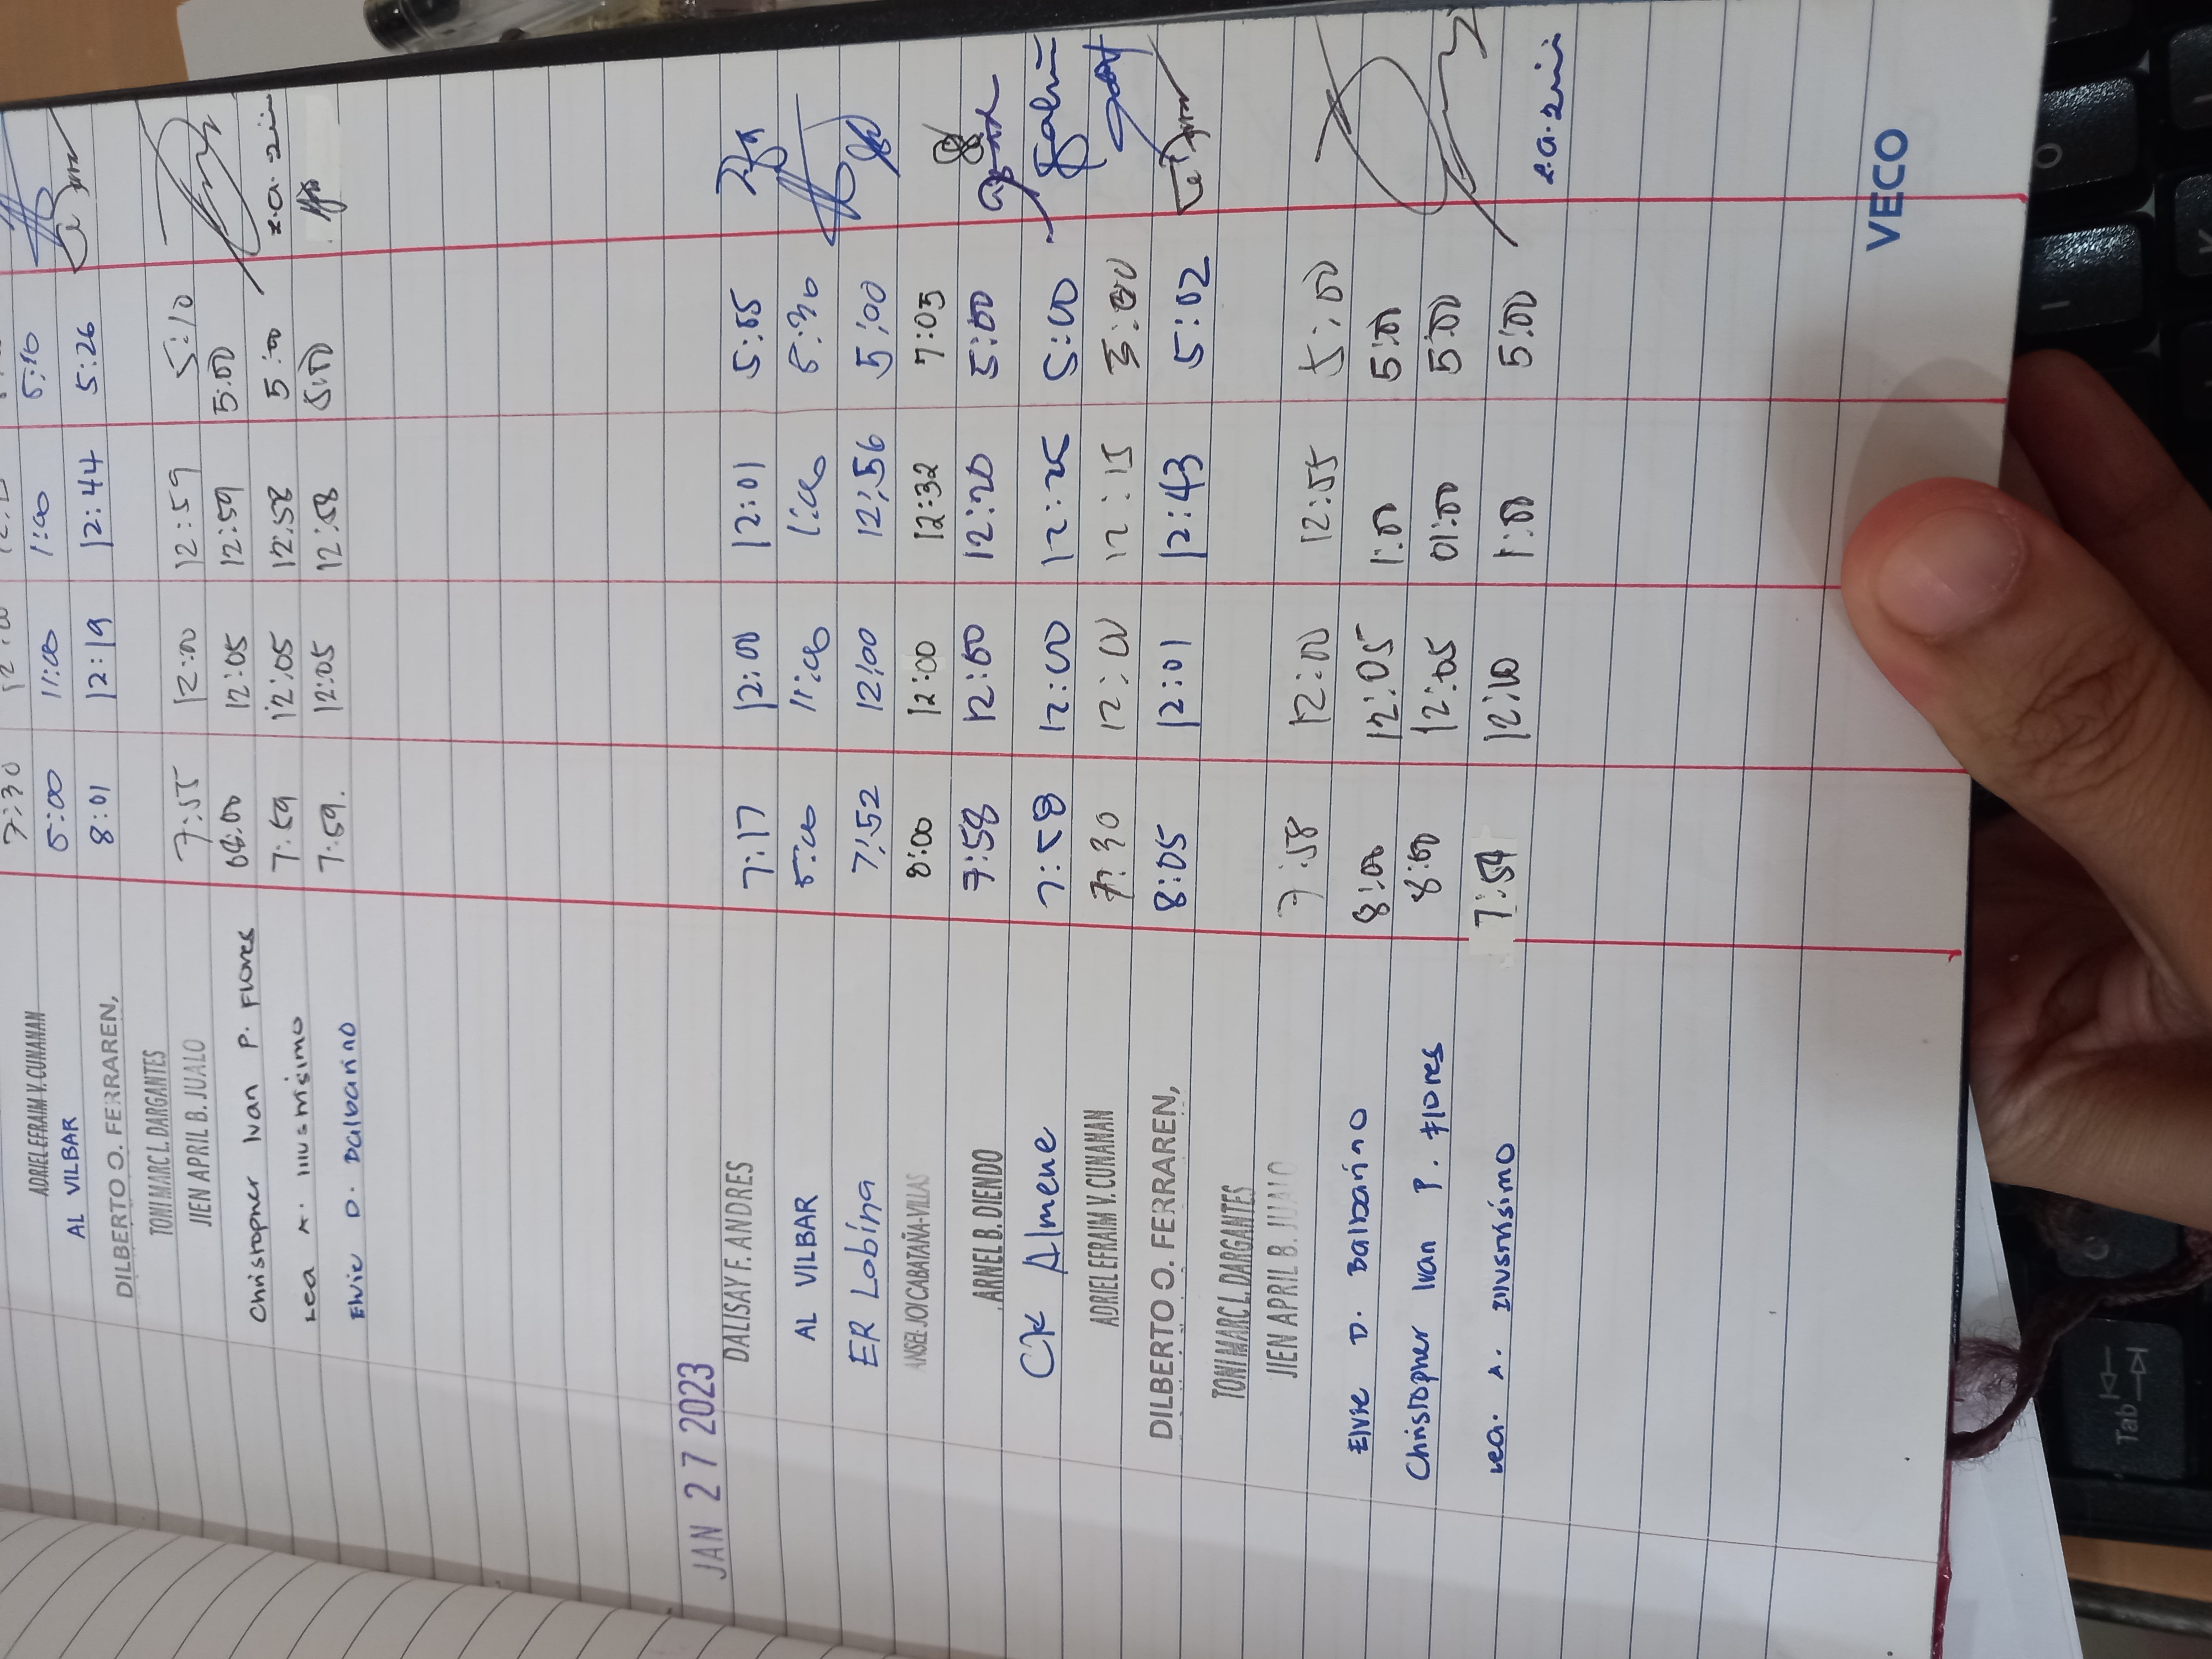 7:30 12:00
ADRIEL EFRAIM V. CUNANAN
AL VILBAR 5:00 11:00 1:00 5:10
DILBERTO O. FERRAREN, 8:01 12:19 12:44 5:26
TONI MARC L. DARGANTES
JIEN APRIL B. JUALO 7:55 12:00 12:59 5:10
Christopher Ivan P. Flores 08:00 12:05 12:59 5:00
Lea A. Illusrisimo 7:59 12:05 12:58 5:00
Elvie D. Balbarino 7:59. 12:05 12:58 5:00
JAN 27 2023
DALISAY F. ANDRES 7:17 12:00 12:01 5:55
AL VILBAR 5:00 11:00 1:00 5:30
ER Lobina 7:52 12:00 12:56 5:00
ANSEL JOI CABATAÑA-VILLAS 8:00 12:00 12:32 7:05
ARNEL B. DIENDO 7:58 12:00 12:20 5:00
CK Almene 7:58 12:00 12:25 5:00
ADRIEL EFRAIM V. CUNANAN 7:30 12:00 12:15 5:00
DILBERTO O. FERRAREN, 8:05 12:01 12:43 5:02
TONI MARC L. DARGANTES
JIEN APRIL B. JUALO 7:58 12:00 12:55 5:00
Elvie D. Balbarino 8:00 12:05 1:00 5:00
Christopher Ivan P. Flores 8:00 12:05 01:00 5:00
Lea. A. Illusrisimo 7:59 12:10 1:00 5:00
VECO
Tab